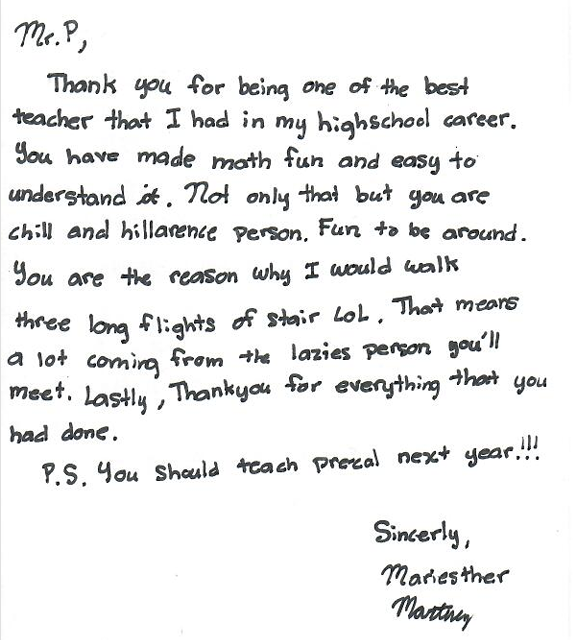 Mr. P,
Thank you for being one of the best
teacher that I had in my highschool career.
You have made math fun and easy to
understand it. Not only that but you are
chill and hillarence person. Fun to be around.
You are the reason why I would walk
three long flights of stair LoL. That means
a lot coming from the lazies person you'll
meet. Lastly, Thankyou for everything that you
had done.
P.S. You should teach precal next year!!!
Sincerly,
Mariesther